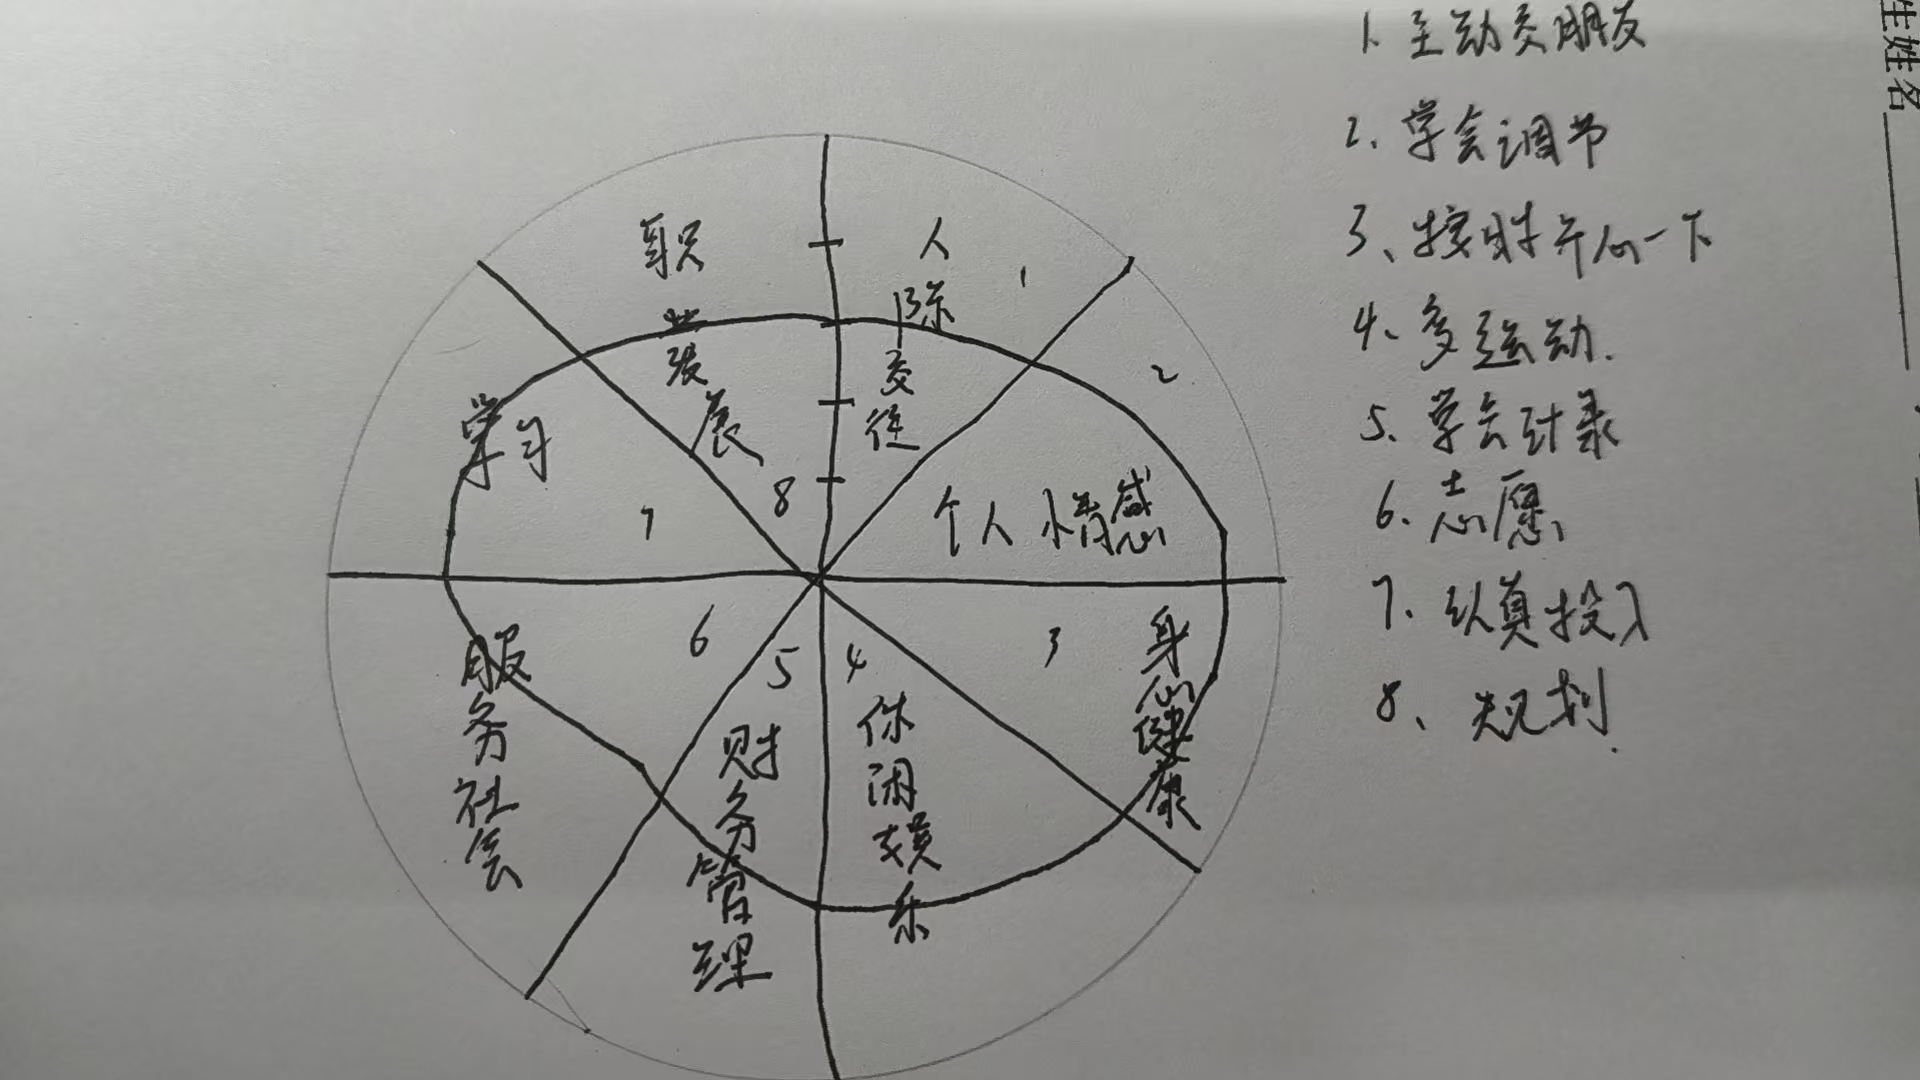 生姓名
1. 主动交朋友
2. 学会调节
3、按时开心一下
4、多运动.
5. 学会计录
6. 志愿
7. 认真投入
8、规划.
职业发展
8
人际交往
1
个人情感
2
身心健康
3
休闲娱乐
4
财务管理
5
服务社会
6
学习
7